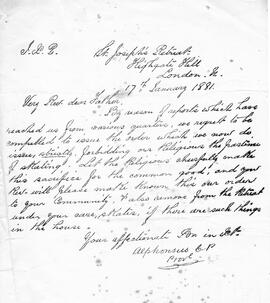 J.X.P. St. Joseph's Retreat
Highgate Hill
London. N.
17th January 1881.
Very Rev. dear Father,
By reason of reports which have
reached us from various quarters, we regret to be
compelled to issue the order which we now do
issue, strictly forbidding our Religious the pastime
of skating. Let the Religious cheerfully make
this sacrifice for the common good; and your
Rev. will please make known this our order
to your Community & also remove from the Retreat
under your care, skates, if there are such things
in the house.
Your affectionate in
Alphonsus C.P.
Provl